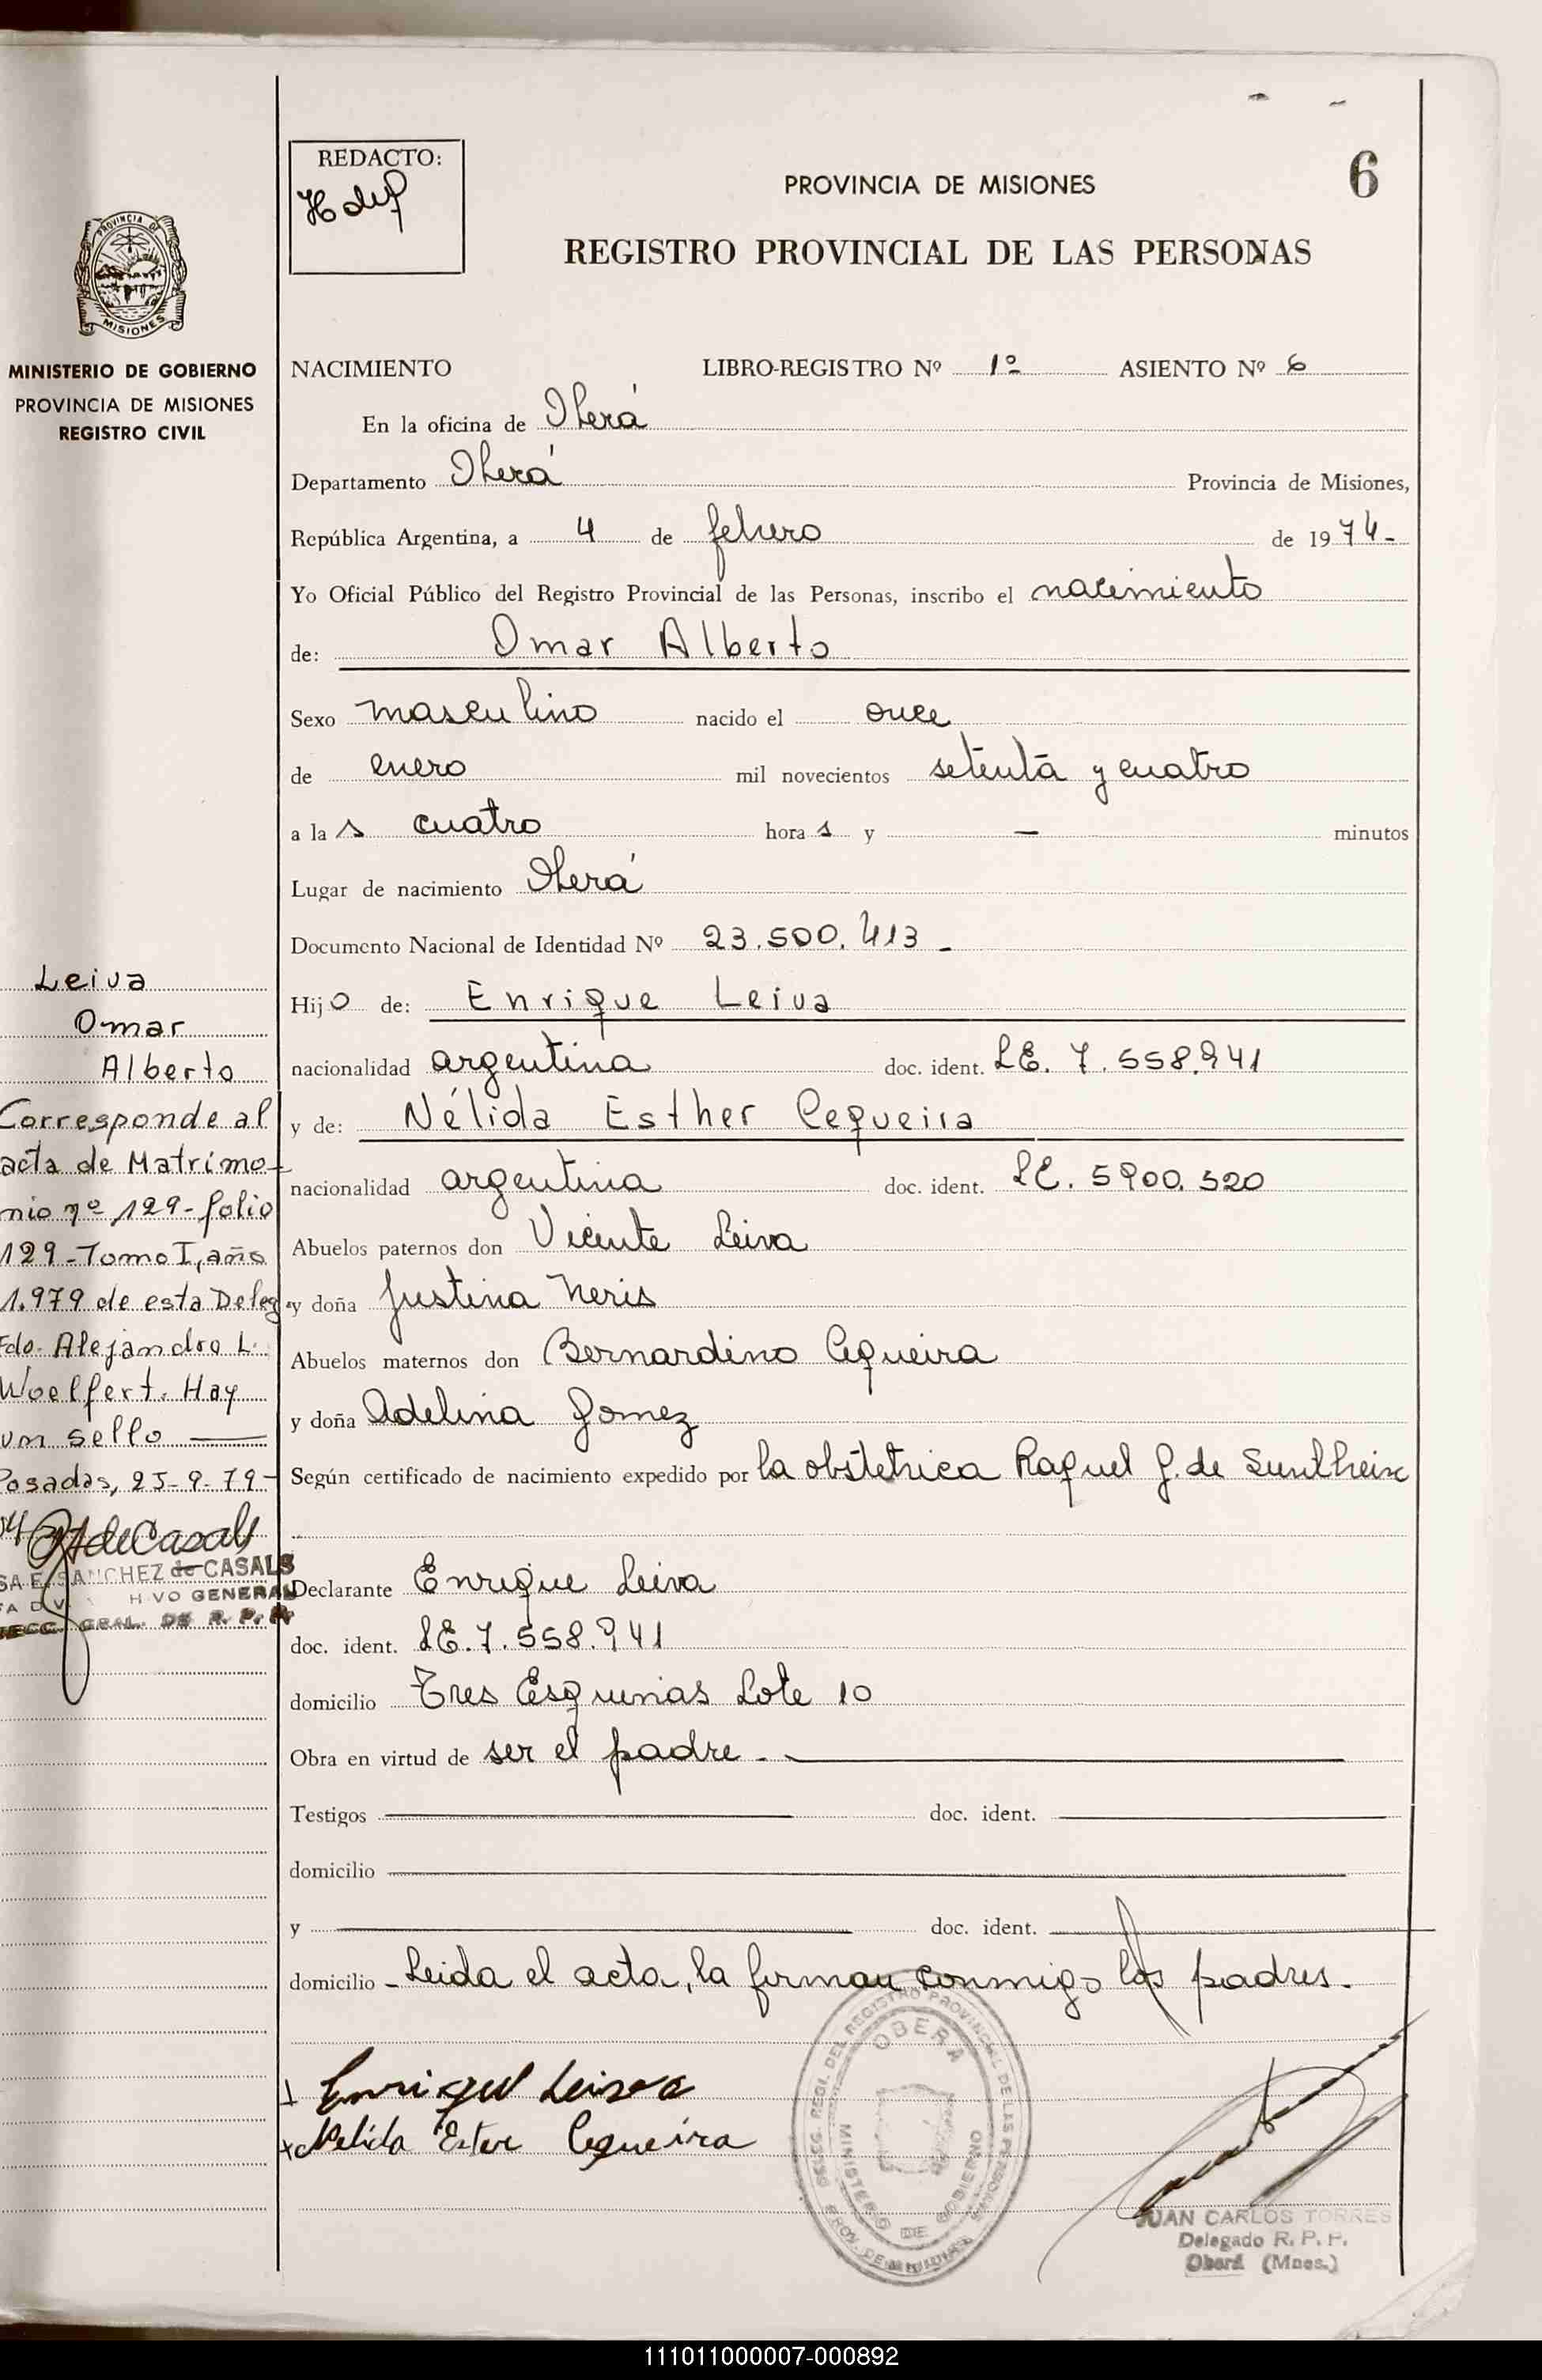 REDACTO:
6
PROVINCIA DE MISIONES
REGISTRO PROVINCIAL DE LAS PERSONAS
PROVINCIA DE
MISIONES
MINISTERIO DE GOBIERNO
PROVINCIA DE MISIONES
REGISTRO CIVIL
NACIMIENTO LIBRO-REGISTRO Nº 1º ASIENTO Nº 6
En la oficina de Oberá
Departamento Oberá Provincia de Misiones,
República Argentina, a 4 de febrero de 1974-
Yo Oficial Público del Registro Provincial de las Personas, inscribo el nacimiento
de: Omar Alberto
Sexo masculino nacido el once
de enero mil novecientos setenta y cuatro
a las cuatro horas y - minutos
Lugar de nacimiento Oberá
Documento Nacional de Identidad Nº 23.500.413-
Hijo de: Enrique Leiva
nacionalidad argentina doc. ident. LE. 7.558.941
y de: Nélida Esther Cequeira
nacionalidad argentina doc. ident. LC. 5900.520
Abuelos paternos don Vicente Leiva
y doña Justina Neris
Abuelos maternos don Bernardino Cequeira
y doña Adelina Gomez
Según certificado de nacimiento expedido por la obstetrica Raquel G. de
Declarante Enrique Leiva
doc. ident. LE. 7.558.941
domicilio Tres Esquinas Lote 10
Obra en virtud de ser el padre.
Testigos doc. ident.
domicilio
y doc. ident.
domicilio - Leida el acta, la firman conmigo los padres.
Leiva
Omar
Alberto
Corresponde al
acta de Matrimo-
nio nº 129-folio
129-Tomo I, año
1.979 de esta Deleg.
Fdo. Alejandro L.
Woelfert. Hay
un sello
Posadas, 25-9-79-
de Casals
SANCHEZ de CASALS
HIVO GENERAL
GRAL. DE R. P. P.
Enrique Leiva
Nelida Ester Cequeira
DELEG. REGL. DEL REGISTRO PROVINCIAL DE LAS PERSONAS
OBERA
MINISTERIO DE GOBIERNO
PROV. DE MISIONES
JUAN CARLOS TORRES
Delegado R. P. P.
Oberá (Mnes.)
111011000007-000892